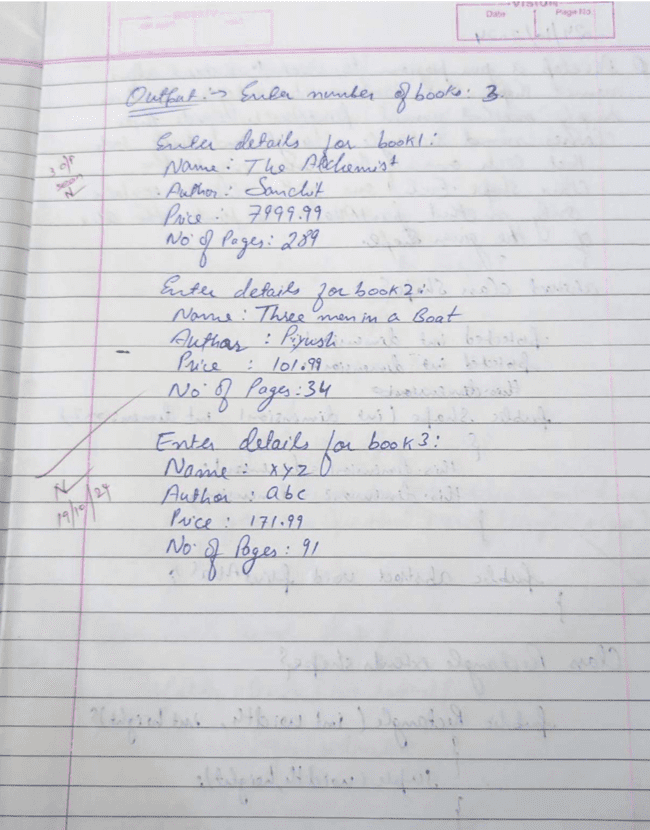 VISION
Date
Page No
Output :-> Enter number of books: 3
Enter details for book1:
Name: The Alchemist
Author: Sanchit
Price : 7999.99
No of Pages: 289
Enter details for book2:
Name: Three men in a Boat
Author : Piyush
Price : 101.99
No of Pages: 34
Enter details for book3:
Name : xyz
Author : abc
Price : 171.99
No of Pages : 91
19/10/24